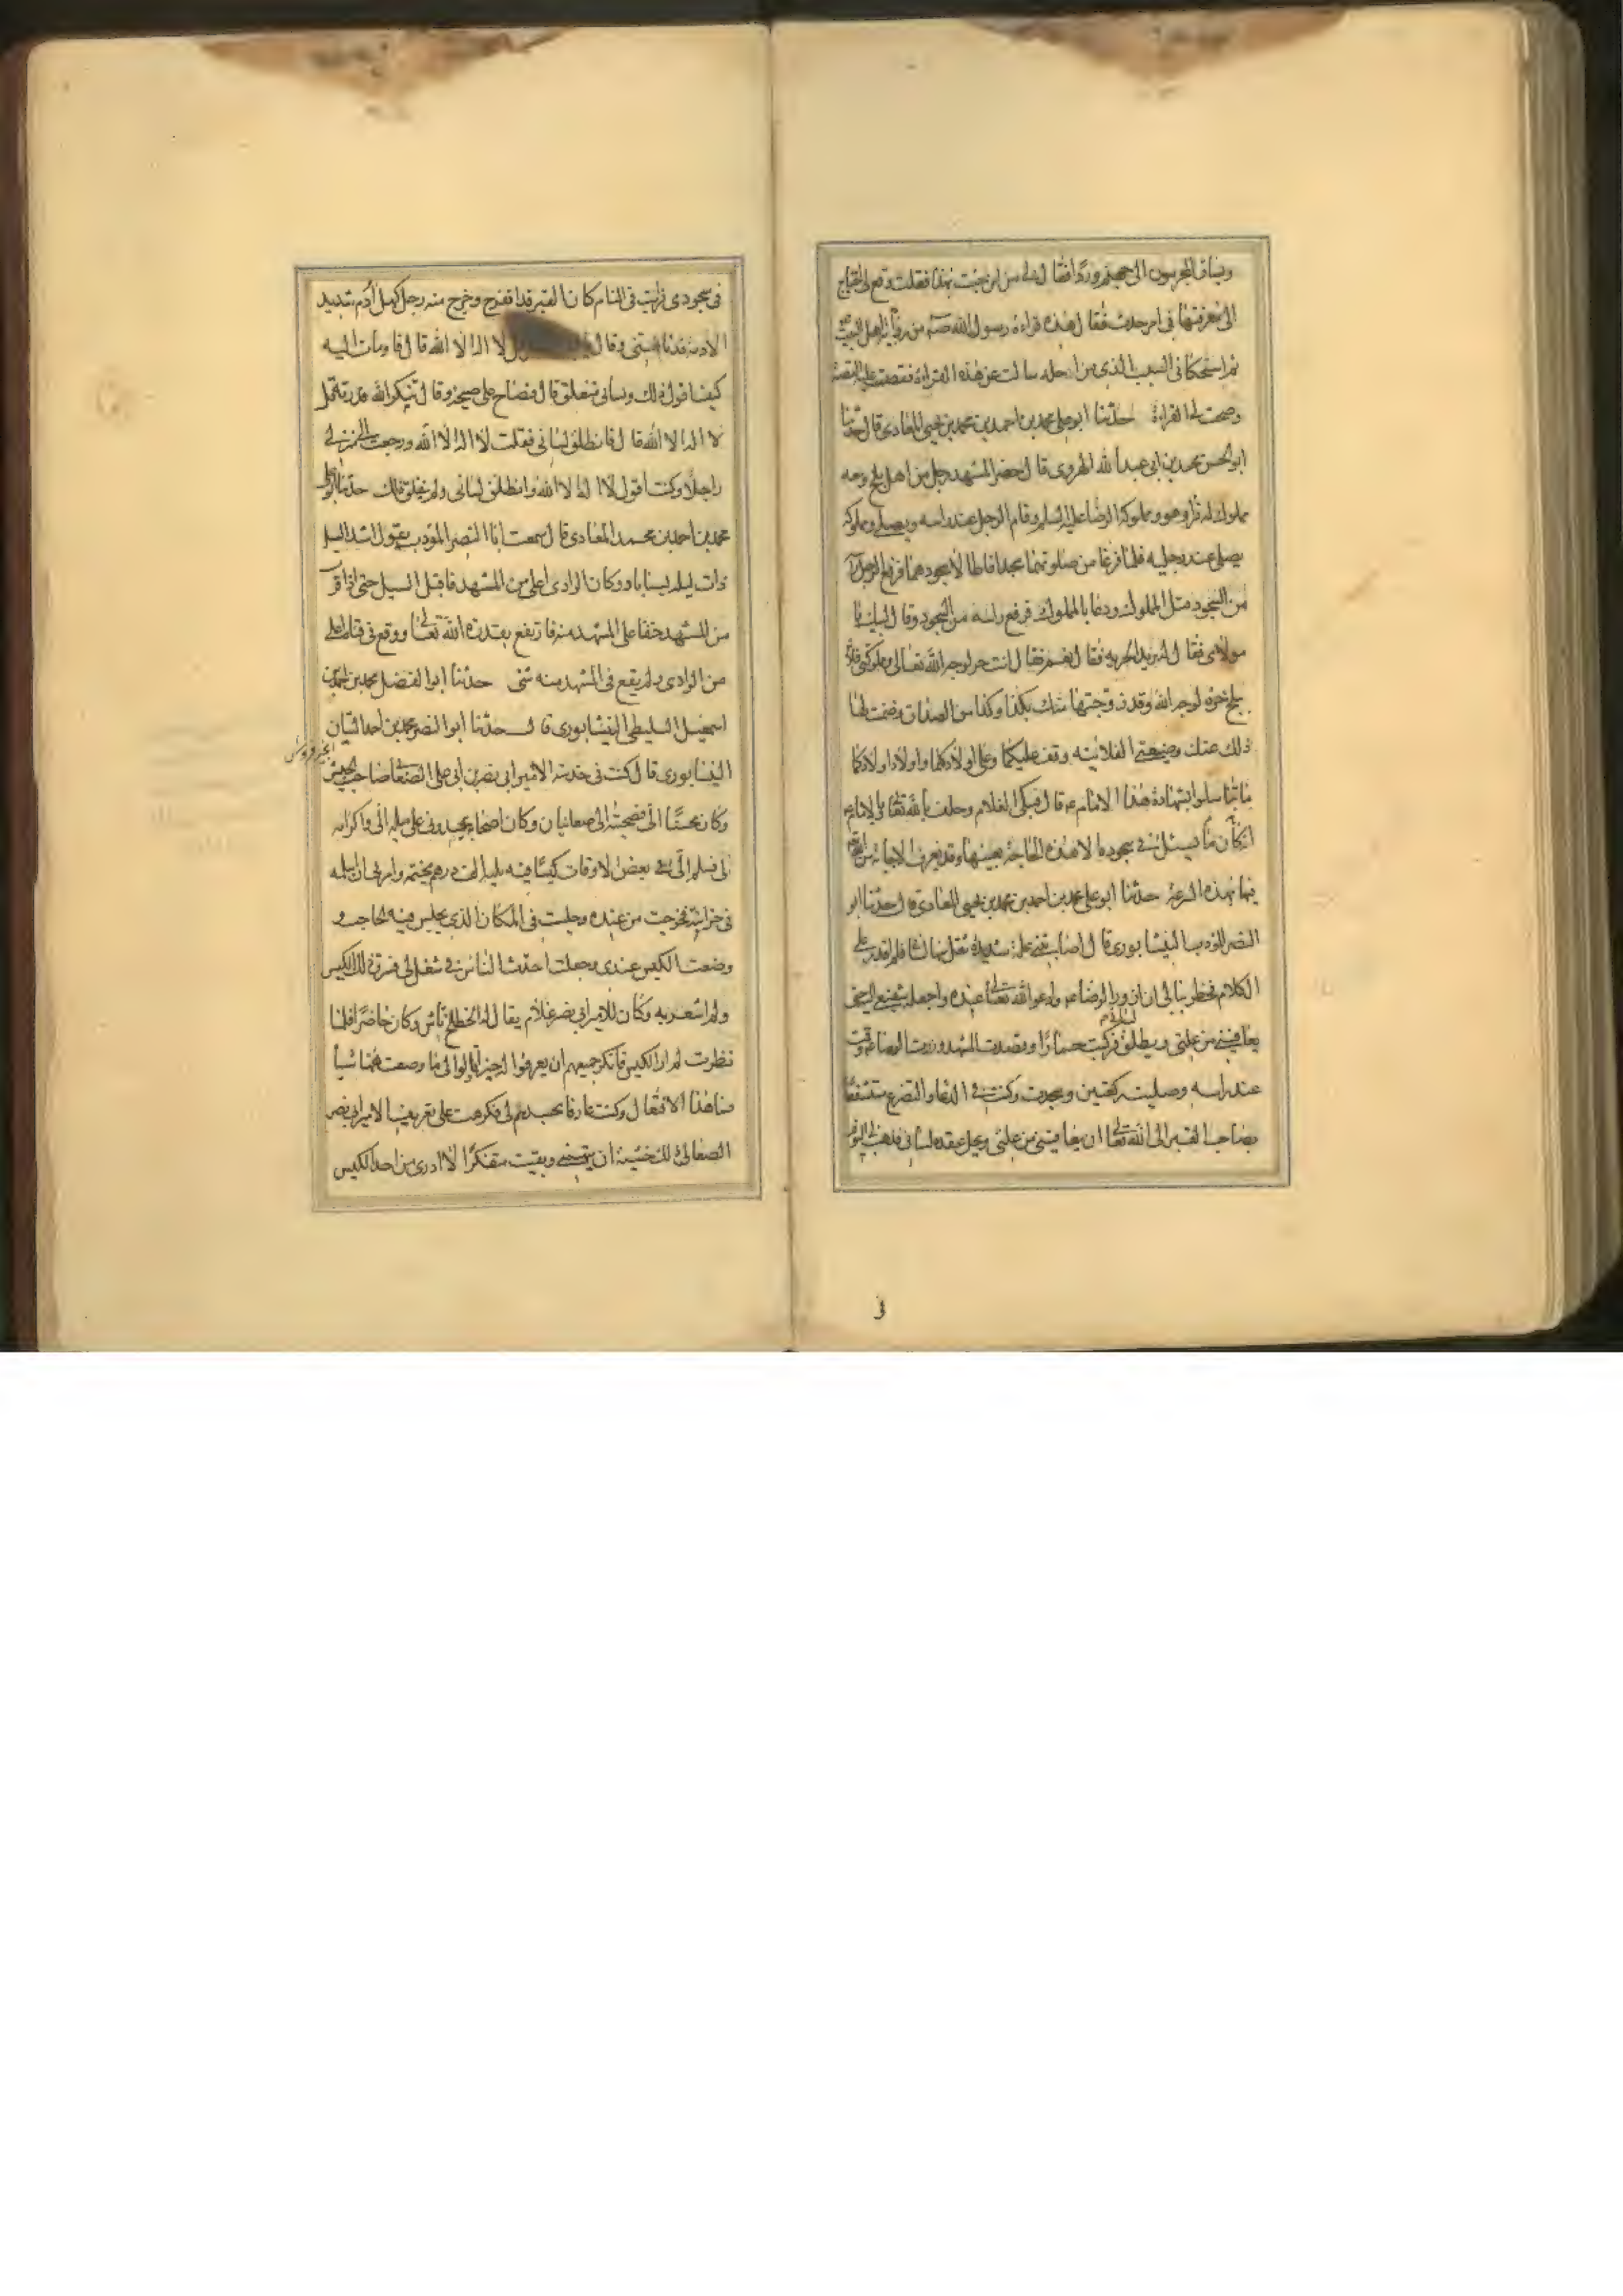 ويساق المجرمون الى جهنم وردا فقال لى من اين جئت بهذا فقلت وقع لى احتياج
الى معرفتها فى امر حدث فقال هذه قراءة رسول الله صه من رواية اهل البيت
ثم استحكانى السبب الذى من اجله سالت عن هذه القراءة فقصصت عليه القصة
وصحت لى القراءة حدثنا ابو على محمد بن احمد بن محمد بن يحيى المعاذى قال حدثنا
ابو الحسن محمد بن ابى عبد الله الهروى قال حضر المشهد رجل من اهل بلخ ومعه
مملوك له فزار هو ومملوكه الرضا عليه السلم وقام الرجل عند راسه ويصلى ومملوكه
يصلى عند رجليه فلما فرغا من صلوتهما سجدا فاطالا سجودهما فرفع الرجل راسه
من السجود قبل المملوك ودعا بالمملوك فرفع راسه من السجود وقال لبيك يا
مولاى فقال له تريد الحرية فقال نعم فقال انت حر لوجه الله تعالى ومملوكتى فلانة
ببلخ حرة لوجه الله وقد زوجتها منك بكذا وكذا من الصداق وضمنت لها
ذلك عنك وضيعتى الفلانية وقف عليكما وعلى اولادكما واولاد اولادكما
ما تناسلوا بشهادة هذا الامام ع قال فبكى الغلام وحلف بالله تعالى وبالامام ع
انه كان ما يسئل فى سجوده الا هذه الحاجة بعينها وقد تعرفت الاجابة من الله
فيها بهذه السرعة حدثنا ابو على محمد بن احمد بن محمد بن يحيى المعاذى قال حدثنا ابو
النصر المؤدب النيشابورى قال اصابتنى علة شديدة ثقل فيها لسانى فلم اقدر على
الكلام فخطر ببالى ان ازور الرضا ع وادعو الله تعالى عنده واجعله شفيعى اليه حتى
يعافينى من علتى ويطلق لسانى فركبت حمارا وقصدت المشهد وزرت الرضا ع وقمت
عند راسه وصليت ركعتين وسجدت وكنت فى الدعاء والتضرع مستشفعا
بصاحب القبر الى الله تعالى ان يعافينى من علتى ويحل عقدة لسانى فذهب بى النوم
فى
فى سجودى فرايت فى المنام كان القبر قد انفرج وخرج منه رجل كهل آدم شديد
الادمة فدنا منى وقال لا اله الا الله قال فاومات اليه
كيف اقول ذلك ولسانى منغلق قال فصاح على صيحة وقال تنكر لله قدرة قل
لا اله الا الله قال فانطلق لسانى فقلت لا اله الا الله ورجعت الى منزلى
راجلا وكنت اقول لا اله الا الله وانطلق لسانى ولم ينغلق بعد ذلك حدثنا ابو على
محمد بن احمد بن محمد المعاذى قال سمعت ابا النصر المؤدب يقول امتد السيل
ذات ليلة بسناباد وكان الوادى اعلى من المشهد فاقبل السيل حتى اذا قرب
من المشهد خفنا على المشهد منه فارتفع بقدرة الله تعالى ووقع فى قناة اعلى
من الوادى ولم يقع فى المشهد منه شئ حدثنا ابو الفضل محمد بن احمد بن
اسمعيل السليطى النيشابورى قال حدثنا ابو النصر محمد بن احمد التبان
النيشابورى قال كنت فى خدمة الامير ابى نصر بن ابى على الصغانى صاحب الجيش
وكان محسنا الى فصحبته الى صغانيان وكان اصحابه يحسدونى على ميله الى واكرامه
لى فسلم الى فى بعض الاوقات كيسا فيه ثلثة الف درهم بختمه وامرنى ان اسلمه
فى خزانته فخرجت من عنده وجلست فى المكان الذى يجلس فيه الحاجب و
وضعت الكيس عندى وجعلت احدث الناس فى شغل لى فسرق ذلك الكيس
ولم اشعر به وكان للامير ابى نصر غلام يقال له خطلخ تاش وكان حاضرا فلما
نظرت لم ار الكيس فانكر جميعهم ان يعرفوا له خبرا وقالوا لى ما وضعت ههنا شيئا
ما هذا الا افتعال وكنت عارفا بحسدهم لى فكرهت على تعريف الامير ابى نصر
الصغانى ذلك خشية ان يتهمنى وبقيت متفكرا لا ادرى من اخذ الكيس